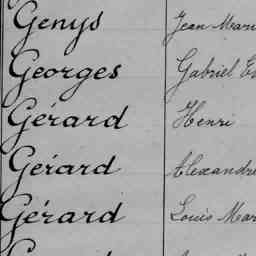 Genys Jean Mari
Georges Gabriel
Gérard Henri
Gérard Alexandre
Gérard Louis Mar